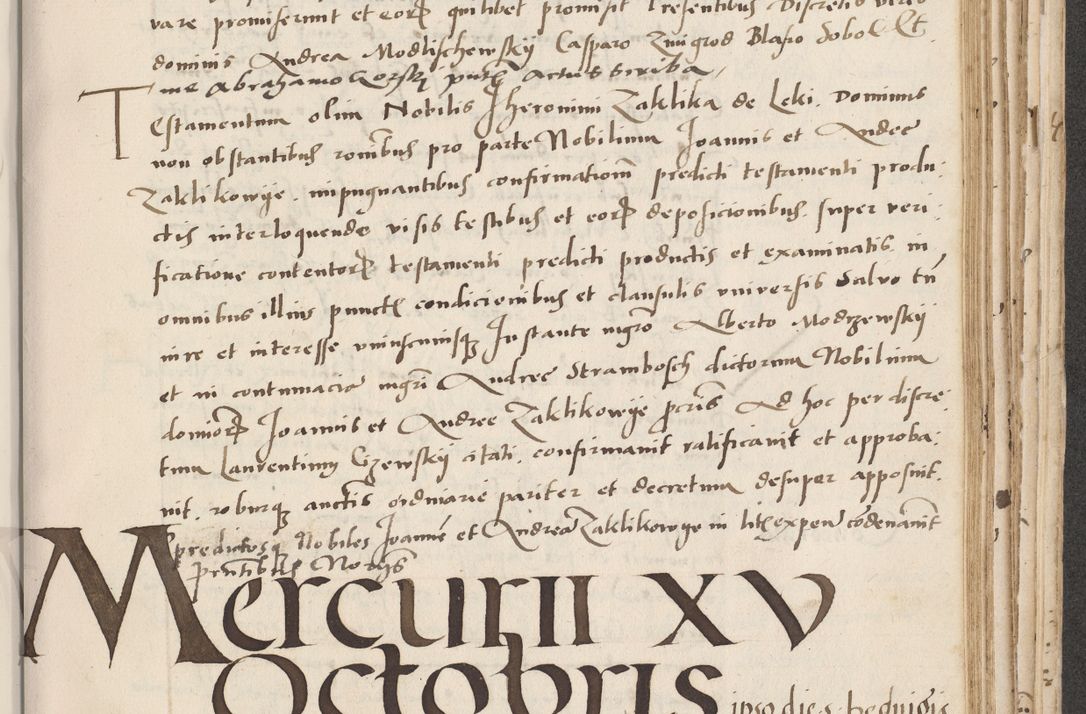 vare promiserunt et eorum quilibet promisit Presentibus Discretis viris
dominis Andrea Modlischewskij Casparo Zmigrod Blasio Sobol Et
me Abrahamo Gorskj putl Actus scriba
Testamentum olim Nobilis Iheronimi Zaklika de Leki. Dominus
non obstantibus ronibus pro parte Nobilium Joannis et Andree
Zaklikowije. impugnantibus confirmationem predicti testamenti produ:
ctis interloquendo visis testibus et eorum deposicionibus. super veri:
ficatione contentorum testamenti predicti productis et examinatis. in
omnibus illius punctis condicionibus et clausulis vniversis Salvo tn
iure et interesse vniuscuiusque Instante mgro Alberto Modrzewskij
et in contumacia mgri Andree Strambosch dictorum Nobilium
domiorum Joannis et Andree Zaklikowije prcris Ad hoc per discre:
tum Laurentium Gzewskij citati. confirmauit ratificauit et approba:
uit. roburque auctis ordinarie pariter et decretum desuper apposuit.
predictosque Nobiles Joannem et Andream Zaklikowye in litis expen condenauit
pntibus Norys
Mercurii XV
Octobris ipso die s. heduigis